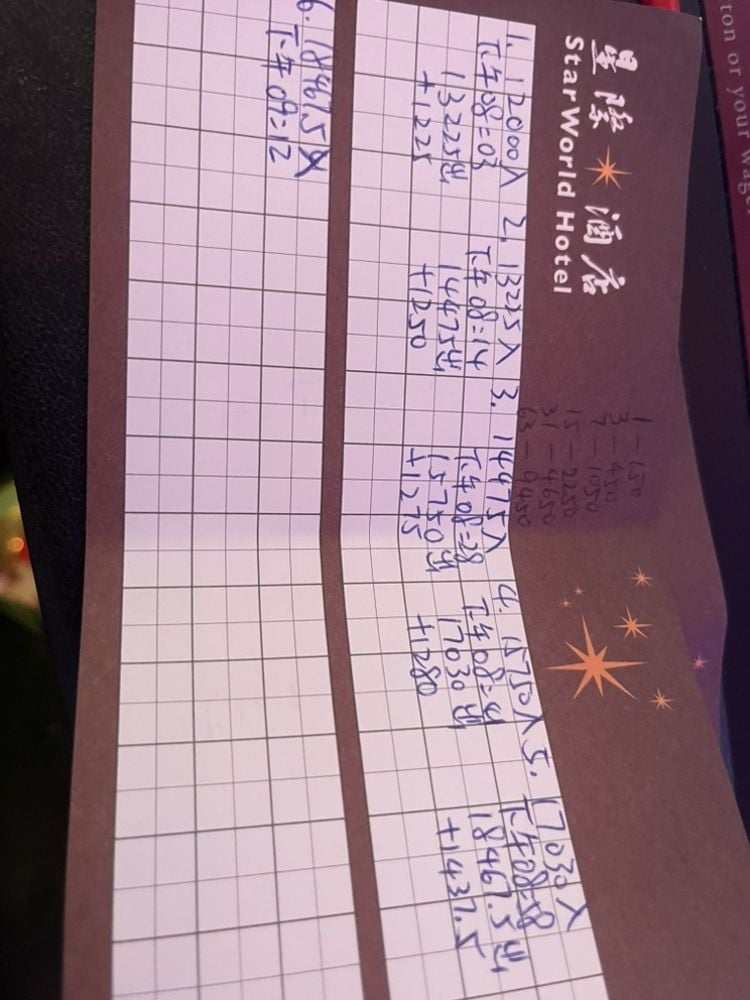 星際酒店
StarWorld Hotel
1 — 150
3 — 450
7 — 1050
15 — 2250
31 — 4650
63 — 9450
1. 12000入
下午08:03
13225出
+1225
2. 13225入
下午08:14
14475出
+1250
3. 14475入
下午08:28
15750出
+1275
4. 15750入
下午08:41
17030出
+1280
5. 17030入
下午08:58
18467.5出
+1437.5
6. 18467.5入
下午09:12
ton or your wage